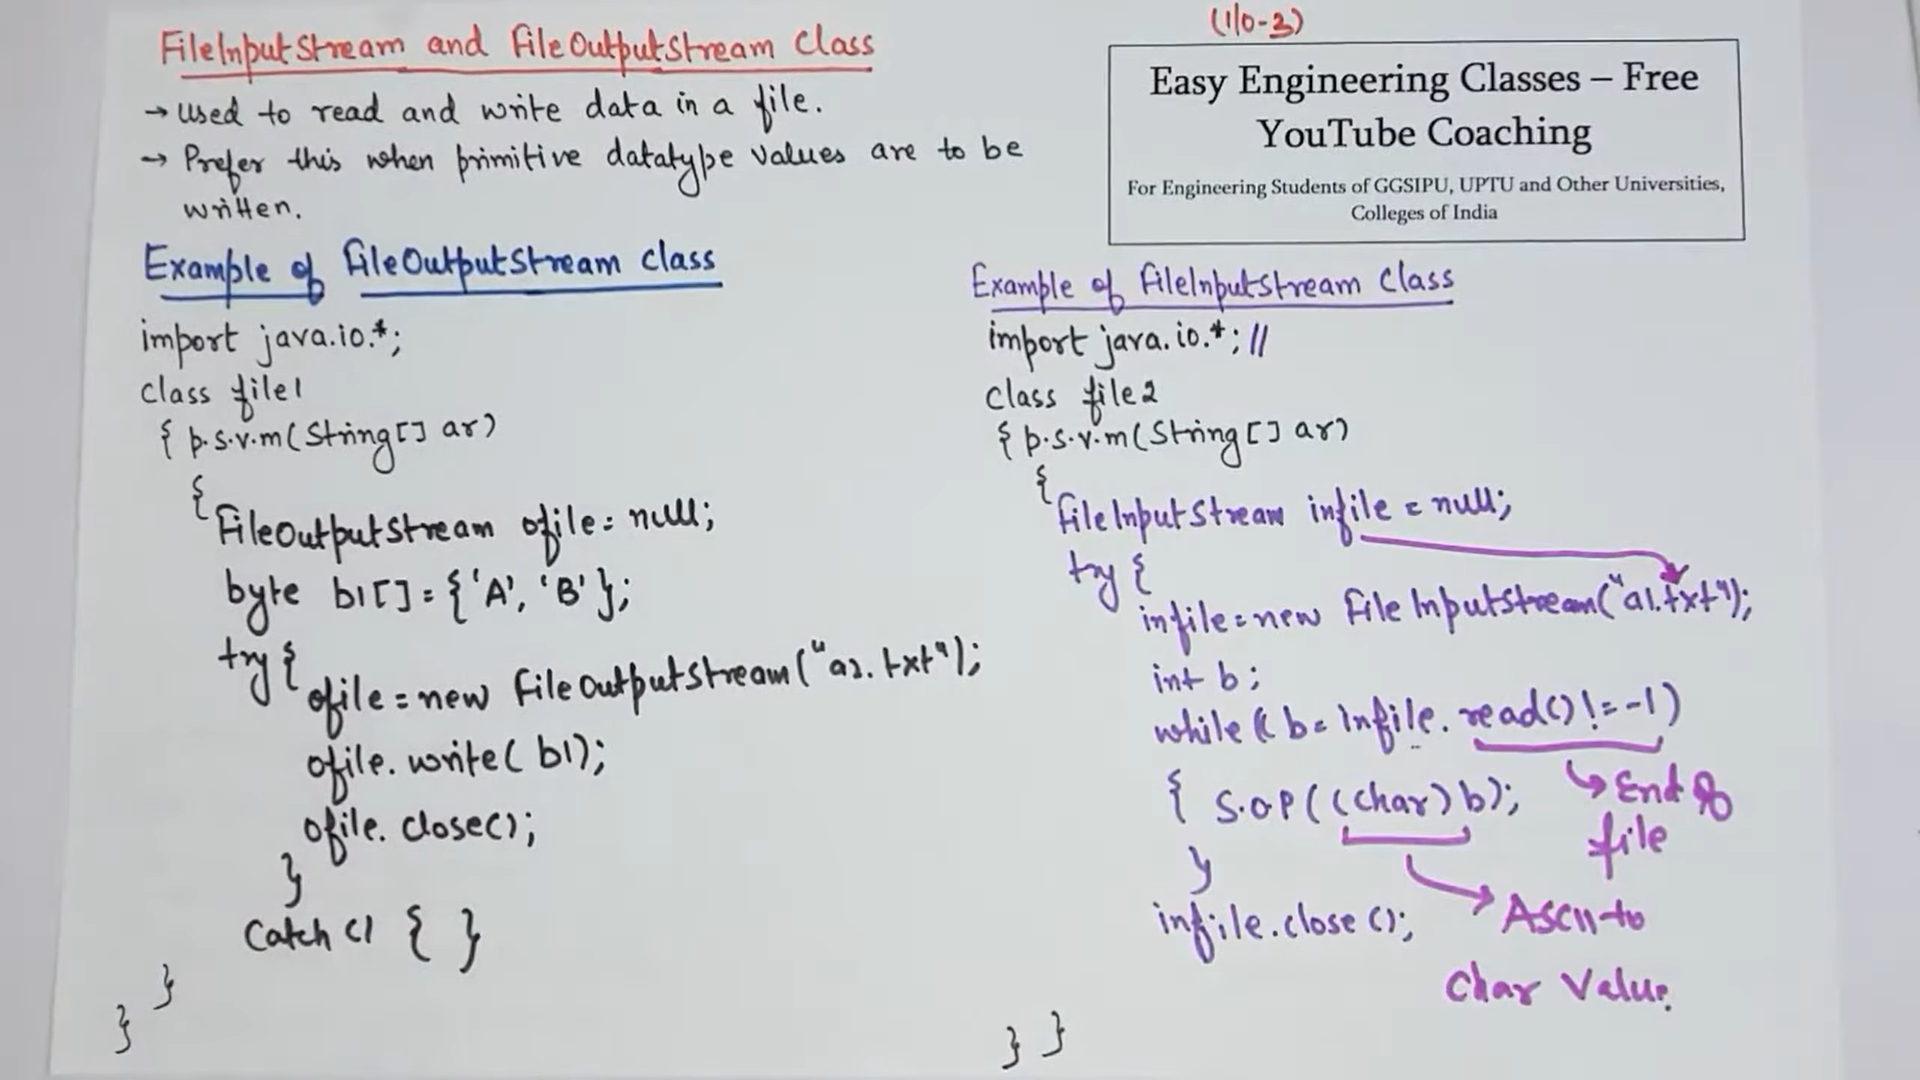 (I/O-3)
FileInputStream and FileOutputStream Class
→ Used to read and write data in a file.
→ Prefer this when primitive datatype values are to be
written.
Easy Engineering Classes – Free
YouTube Coaching
For Engineering Students of GGSIPU, UPTU and Other Universities,
Colleges of India
Example of FileOutputStream class
import java.io.*;
class file1
{ p.s.v.m(String[] ar)
{
FileOutputStream ofile = null;
byte b1[] = {'A', 'B'};
try {
ofile = new FileOutputStream("a1.txt");
ofile.write(b1);
ofile.close();
}
Catch () { }
}
}
Example of FileInputStream Class
import java.io.*; //
class file2
{ p.s.v.m(String[] ar)
{
FileInputStream infile = null;
try {
infile = new FileInputStream("a1.txt");
int b;
while (( b = infile.read() != -1)
→ End of
file
{ S.O.P((char) b);
}
→ ASCII to
Char Value.
infile.close();
} }